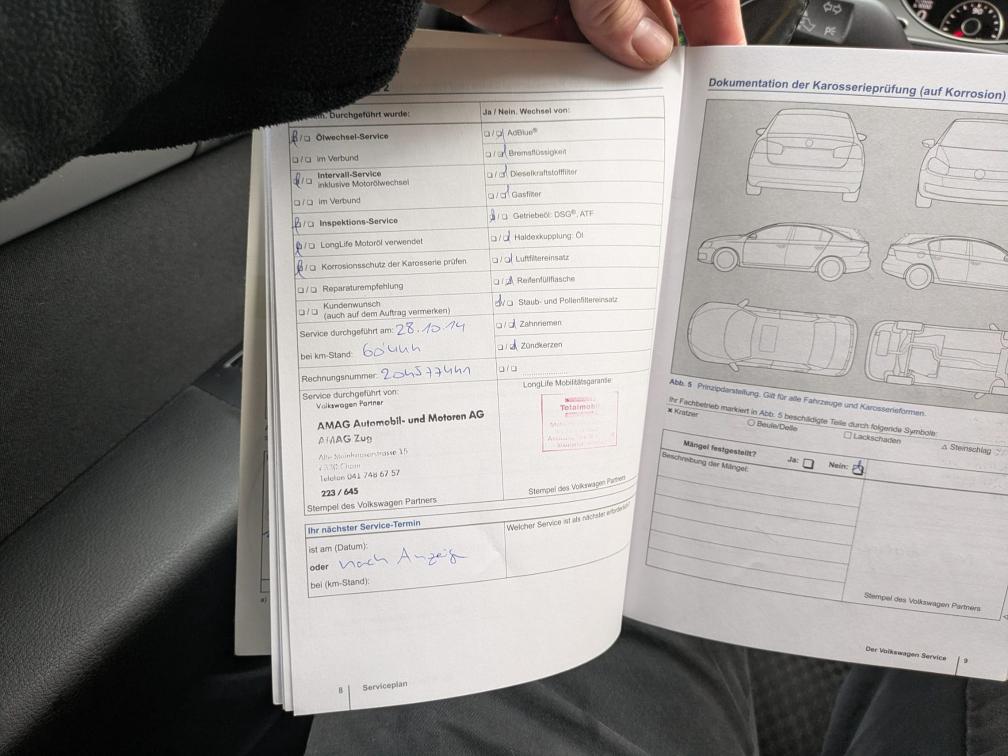 2
Durchgeführt wurde:
Ölwechsel-Service
im Verbund
Intervall-Service
inklusive Motorölwechsel
im Verbund
Inspektions-Service
LongLife Motoröl verwendet
Korrosionsschutz der Karosserie prüfen
Reparaturempfehlung
Kundenwunsch
(auch auf dem Auftrag vermerken)
Service durchgeführt am: 28.10.14
bei km-Stand:
Rechnungsnummer:
Service durchgeführt von:
Volkswagen Partner
AMAG Automobil- und Motoren AG
AMAG Zug
Alte Steinhauserstrasse 15
6330 Cham
Telefon 041 748 67 57
223 / 645
Stempel des Volkswagen Partners
Ja / Nein. Wechsel von:
AdBlue®
Bremsflüssigkeit
Dieselkraftstofffilter
Gasfilter
Getriebeöl: DSG®, ATF
Haldexkupplung: Öl
Luftfiltereinsatz
Reifenfüllflasche
Staub- und Pollenfiltereinsatz
Zahnriemen
Zündkerzen
LongLife Mobilitätsgarantie:
Totalmobil
Stempel des Volkswagen Partners
Ihr nächster Service-Termin
ist am (Datum):
oder nach Anzeige
bei (km-Stand):
Welcher Service ist als nächster erforderlich
8 Serviceplan
Dokumentation der Karosserieprüfung (auf Korrosion)
Abb. 5 Prinzipdarstellung. Gilt für alle Fahrzeuge und Karosserieformen.
Ihr Fachbetrieb markiert in Abb. 5 beschädigte Teile durch folgende Symbole:
Kratzer Beule/Delle Lackschaden Steinschlag
Mängel festgestellt? Ja: Nein:
Beschreibung der Mängel:
Stempel des Volkswagen Partners
Der Volkswagen Service 9